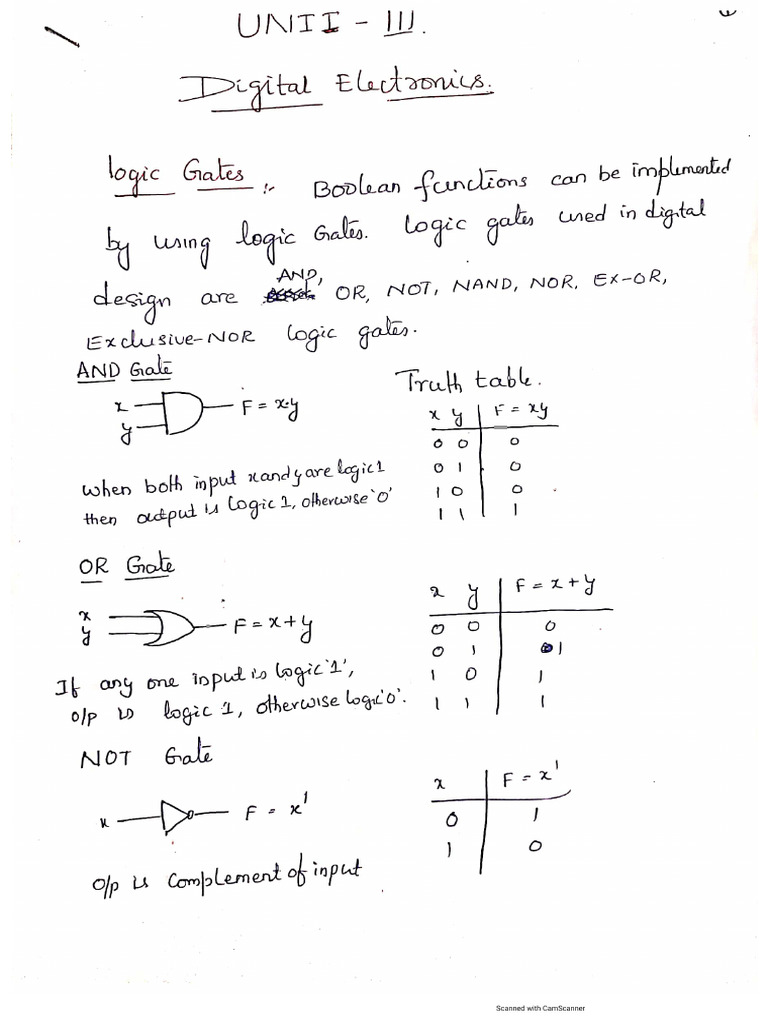 UNIT - III.
Digital Electronics.
logic Gates :- Boolean functions can be implemented
by using logic Gates. Logic gates used in digital
design are AND, OR, NOT, NAND, NOR, EX-OR,
Exclusive-NOR logic gates.
AND Gate
Truth table.
x
y
F = x.y
x y F = xy
0 0 0
0 1 0
1 0 0
1 1 1
when both input x and y are logic 1
then output is logic 1, otherwise '0'
OR Gate
x
y
F = x + y
x y F = x + y
0 0 0
0 1 1
1 0 1
1 1 1
If any one input is logic '1',
o/p is logic 1, otherwise logic '0'.
NOT Gate
x
F = x'
x F = x'
0 1
1 0
o/p is complement of input
Scanned with CamScanner